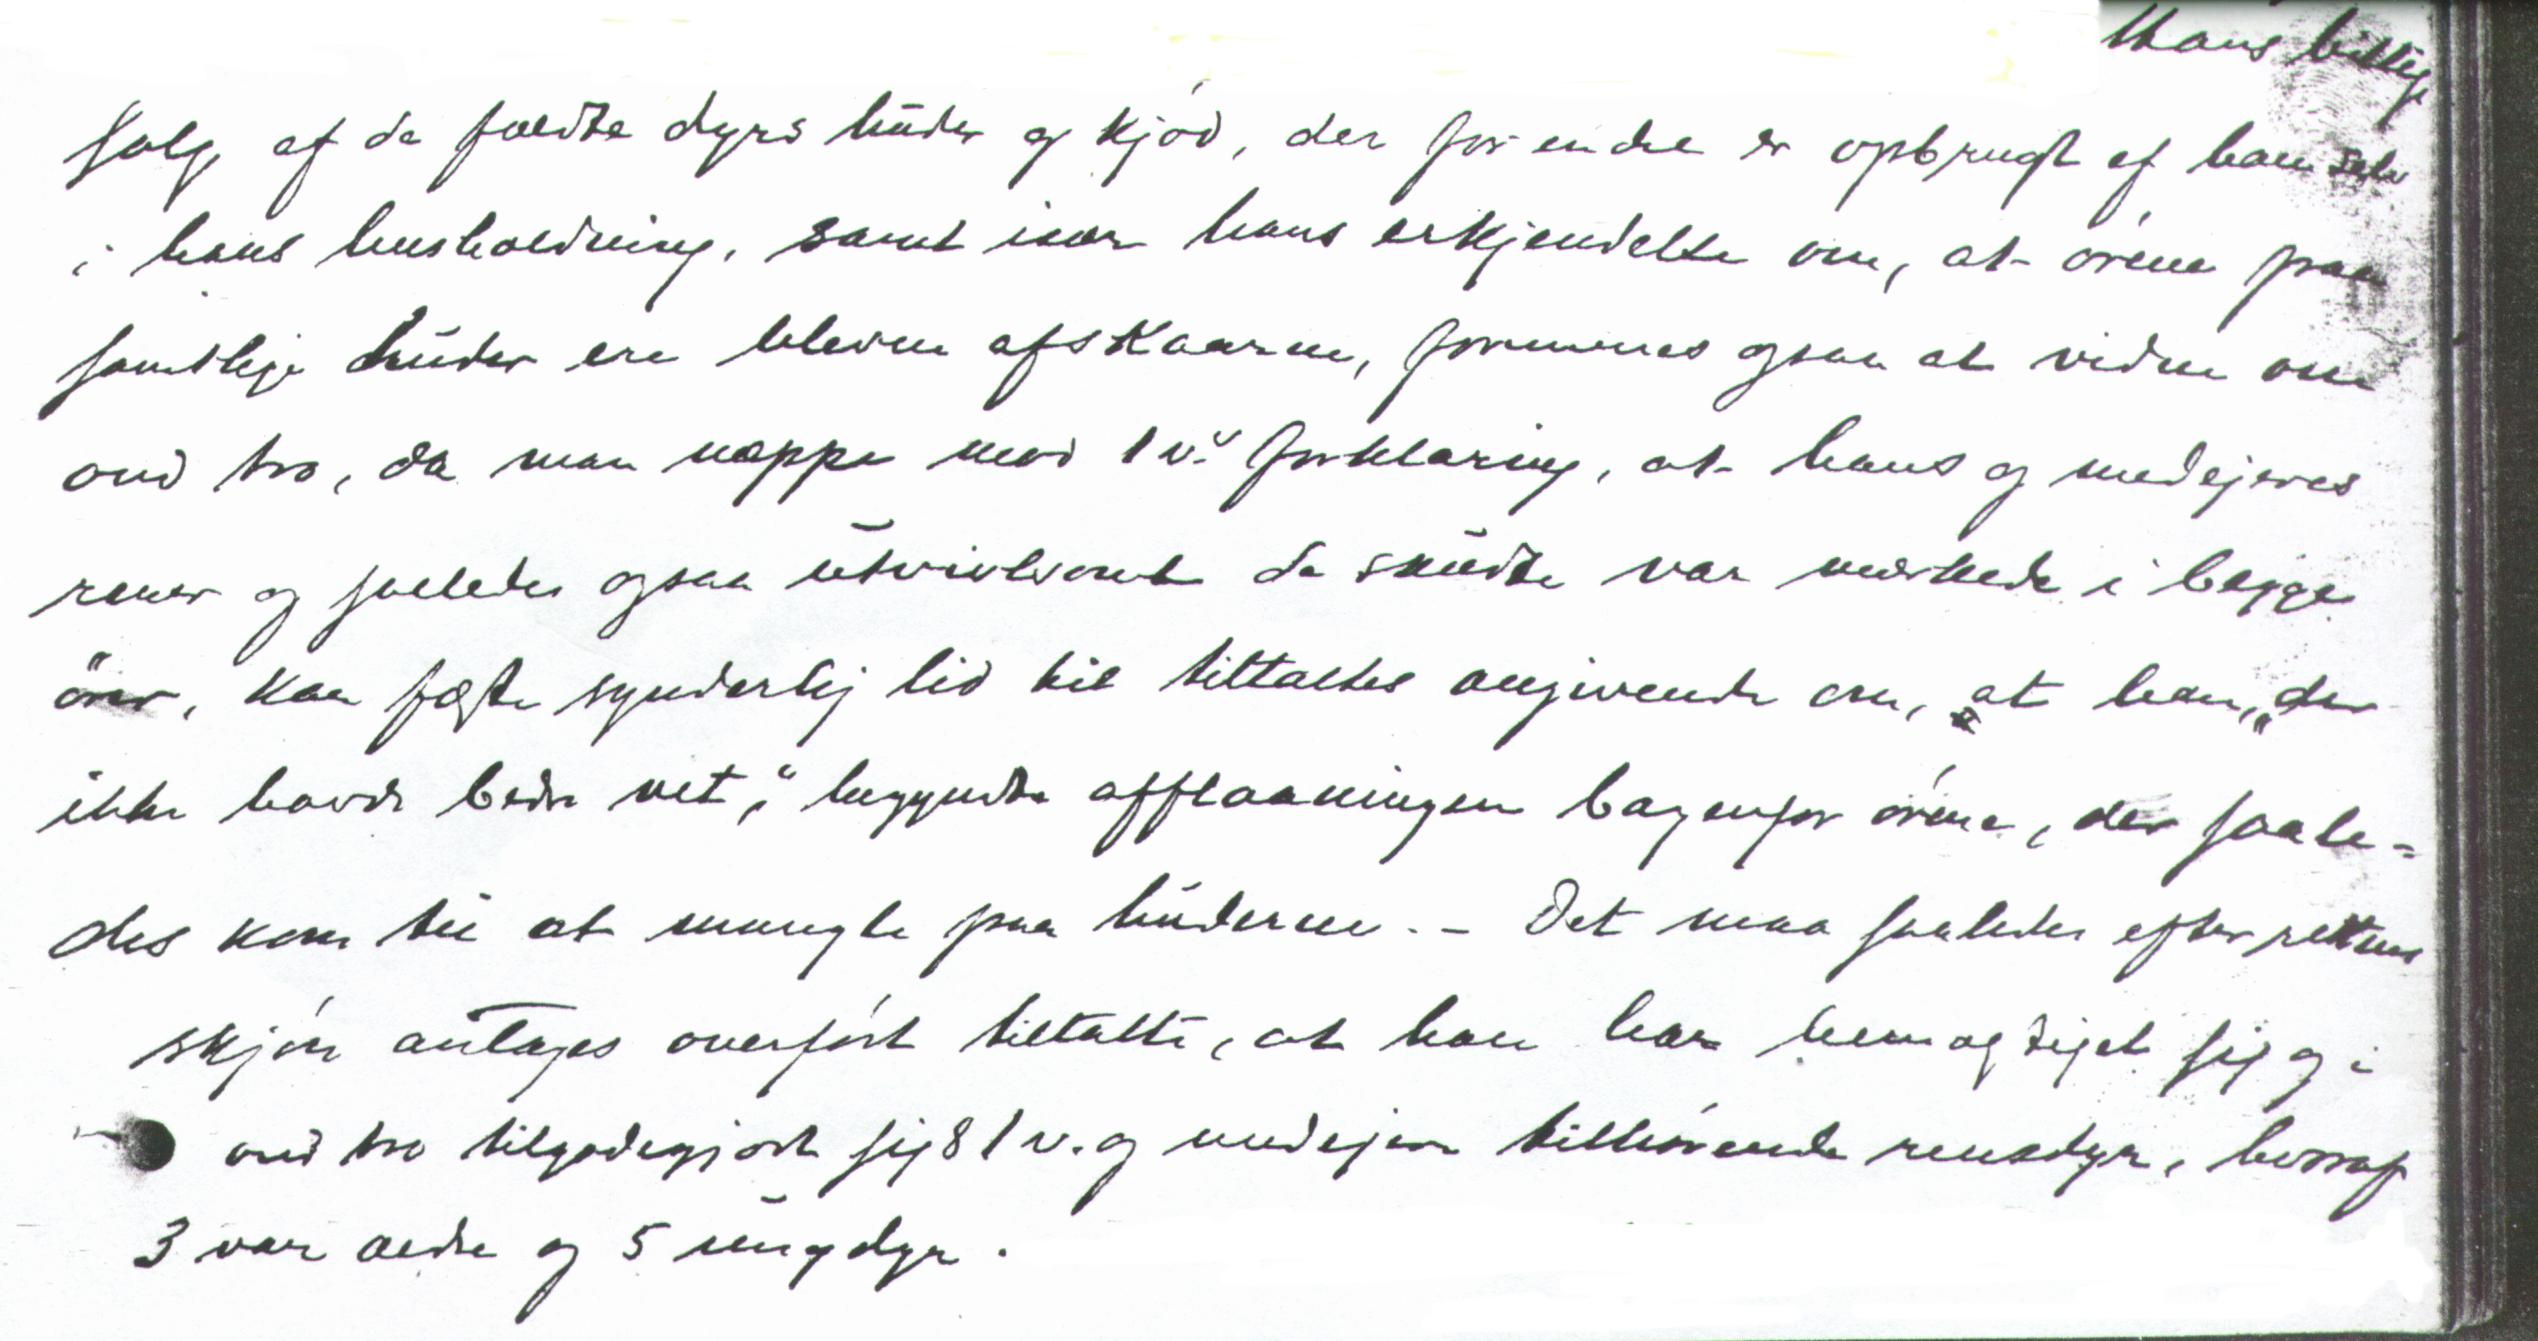 Hans billige
salg af de fældte dyrs huder og kjød, der for endel er opbrugt af ham selv
i hans husholdning, samt især hans erkjendelse om, at ørene paa
samtlige huder ere blevne afskaarne, formenes ogsaa at vidne om
ond tro, da man neppe mod 1 v.s forklaring, at hans og medejeres
rener og saaledes ogsaa utvivlsomt de skudte var merkede i begge
ører, kan fæste synderlig lid til tiltaltes angivende om, at han, "der
ikke havde bedre vet," begyndte afflaaningen bagenfor ørene, der saale-
des kom til at mangle paa huderne. - Det maa saaledes efter rettens
skjøn antages overført tiltalte, at han har bemægtiget sig og i
ond tro tilgodegjort sig 8 1 v. og medejere tilhørende rensdyr, hvoraf
3 var ældre og 5 ungdyr.